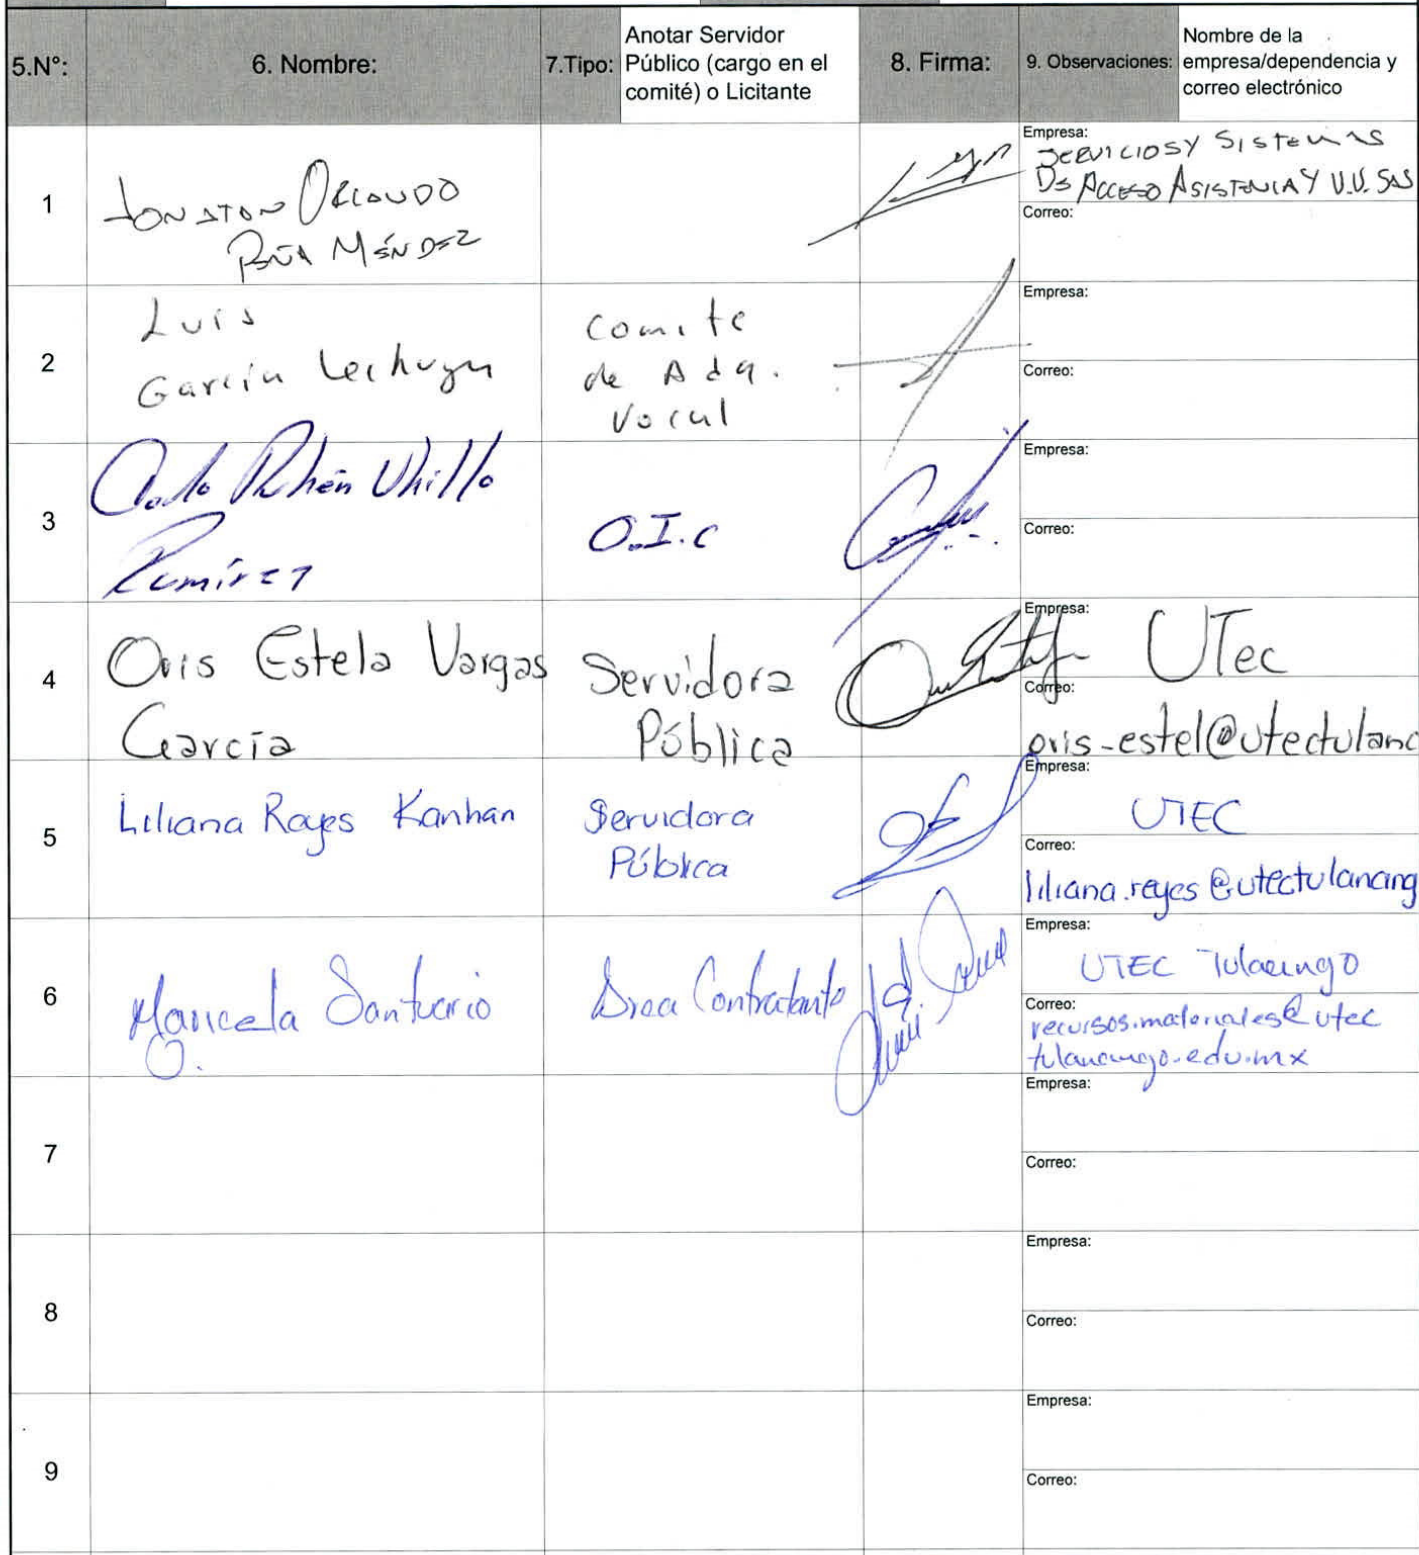 5.N°: 6. Nombre: 7.Tipo: Anotar Servidor Público (cargo en el comité) o Licitante 8. Firma: 9. Observaciones: Nombre de la empresa/dependencia y correo electrónico
1
ORLANDO
PEÑA MÉNDEZ
Empresa:
SERVICIOS Y SISTEMAS
DE ACCESO ASISTENCIA Y V.V. SAS
Correo:
2
Luis
García Lechuga
Comite
de Adq.
Vocal
Empresa:
Correo:
3
Ramírez
O.I.C
Empresa:
Correo:
4
Oris Estela Vargas
García
Servidora
Pública
Empresa:
UTec
Correo:
oris-estel@utectulanc
5
Liliana Reyes Kanhan
Servidora
Pública
Empresa:
UTEC
Correo:
liliana.reyes@utectulancing
6
Maricela Santuario
O.
Area Contratante
Empresa:
UTEC Tulacingo
Correo:
recursos.materiales@utec
tulancingo.edu.mx
7
Empresa:
Correo:
8
Empresa:
Correo:
9
Empresa:
Correo: